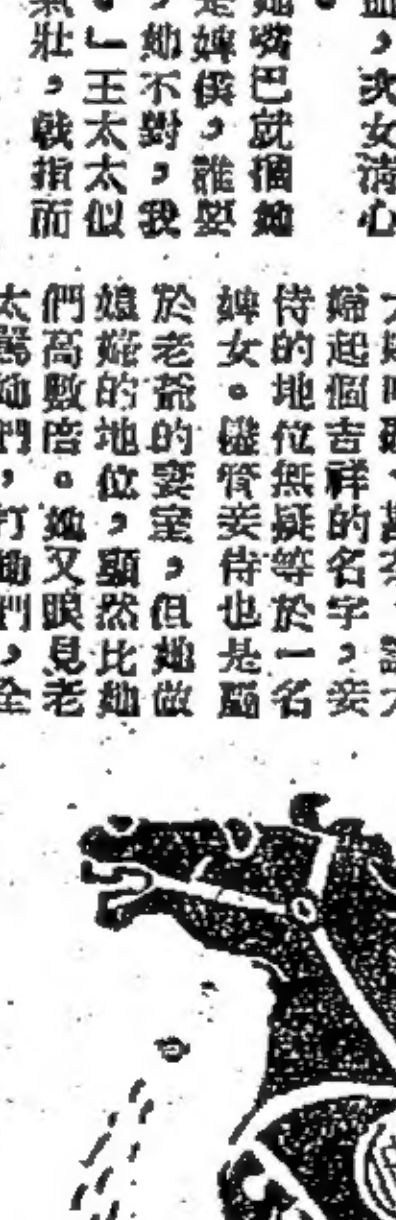 血，次女清心
。
她嘴巴就個她
是婢僕，誰要
，她不對，我
。」王太太似
氣壯，戟指而
婦起個吉祥的名字，妾
侍的地位無疑等於一名
婢女。儘管妾侍也是屬
於老爺的妻室，但她做
媳婦的地位，顯然比她
們高數倍。她又眼見老
太罵她們，打她們，全